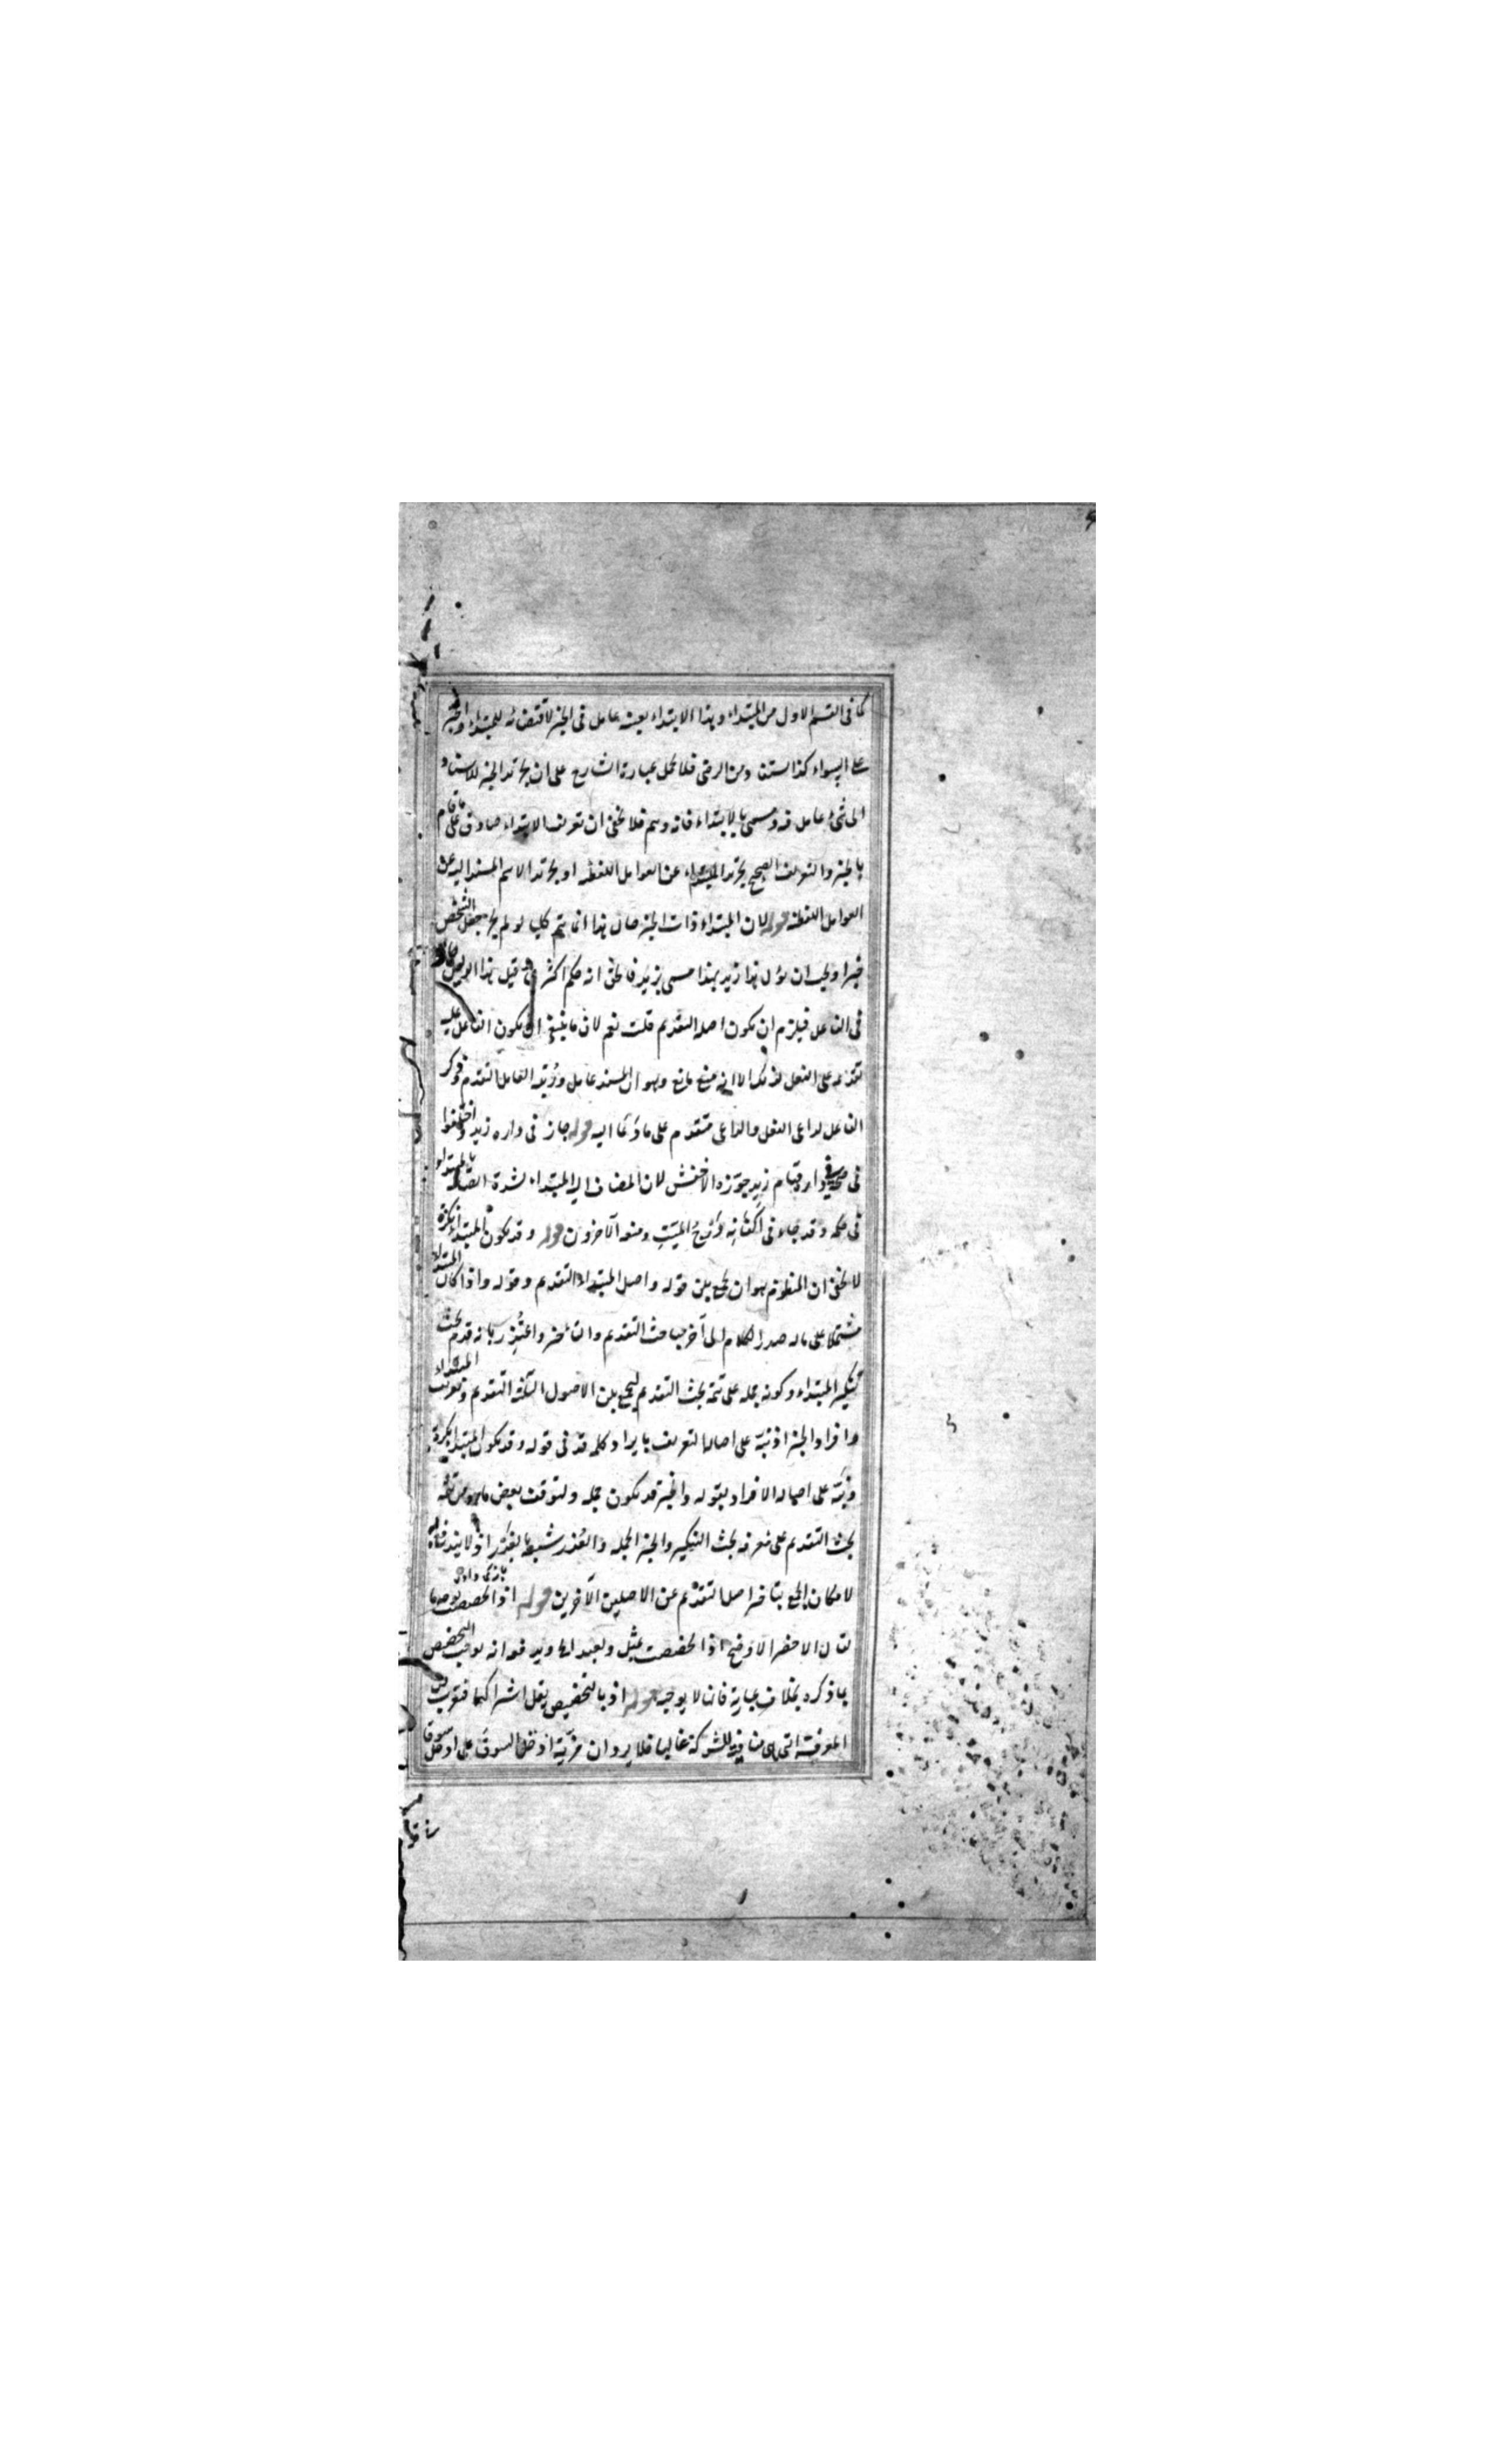 كما فى القسم الاول من المبتداء وهذا الابتداء بعينه عامل فى الخبر لاقتضائه للمبتداء والخبر
على السواء كذا استفاد من الرضى فلا تحمل عبارة الشارح على ان تجرد الخبر للاسناد
الى شئ عامل فيه ومسمى بالابتداء فانه وهم فلا يخفى ان تعريف الابتداء صادق على ما قام
بالخبر والتعريف الصحيح تجرد المبتداء عن العوامل اللفظية او تجرد الاسم المسند اليه عن
العوامل اللفظية قوله لان المبتداء ذات الخبر حال هذا انما يتم كليا لو لم يجز جعل الشخص
خبرا ويجب ان يؤل هذا زيد بهذا مسمى بزيد فالحق انه حكم اكثرى قيل هذا
فى الفاعل فيلزم ان يكون اصله التقديم قلت نعم لان ما ينبغى ان يكون الفاعل عليه
تقدمه على الفعل لذلك الا انه منع مانع وهو ان المسند عامل ورتبة العامل التقدم فذكر
الفاعل لداعى الفعل والداعى متقدم على ما دعا اليه قوله جاز فى داره زيد واختلفوا
فى صحة فى داره قيام زيد جوزه الاخفش لان المضاف اليه المبتداء لشدة اتصاله بالمبتداء
فى حكمه وقد جاء فى اكفانه درج الميت ومنعه الآخرون قوله وقد يكون المبتداء نكرة
لا يخفى ان المنظوم هو ان يجمع بين قوله واصل المبتداء التقديم وقوله واذا كان المبتداء
مشتملا على ما له صدر الكلام الى آخر مباحث التقديم والتأخير واعتذر بانه قدم بحث
تنكير المبتداء وكونه جملة على تتمة بحث التقديم ليجمع بين الاصول الثلثة التقدم وتعريف المبتداء
وافراد الخبر اذ نبه على اصالة التعريف بايراد كلمة قد فى قوله وقد يكون المبتداء نكرة
ونبه على اصالة الافراد بقوله والخبر قد يكون جملة ولتوقف بعض ما هو من تتمة
بحث التقديم على معرفة بحث التنكير والخبر الجملة والعذر شبيه بالغدر اذ لا يندفع
لامكان الجمع بتأخير اصل التقدم عن الاصلين الآخرين قوله اذا تخصصت بوجه ما
لقال الاخصر الاوضح اذا تخصصت بمثل ولعبد الخ ويدفعه انه يوجب التخصيص
بما ذكره بخلاف عبارته فانه لا يوجبه قوله اذ بالتخصيص يقل اشتراكها فتقرب من
المعرفة التى هى منافية للشركة غالبا فلا يرد ان مزية ادخل السوق على ادخل سوقا